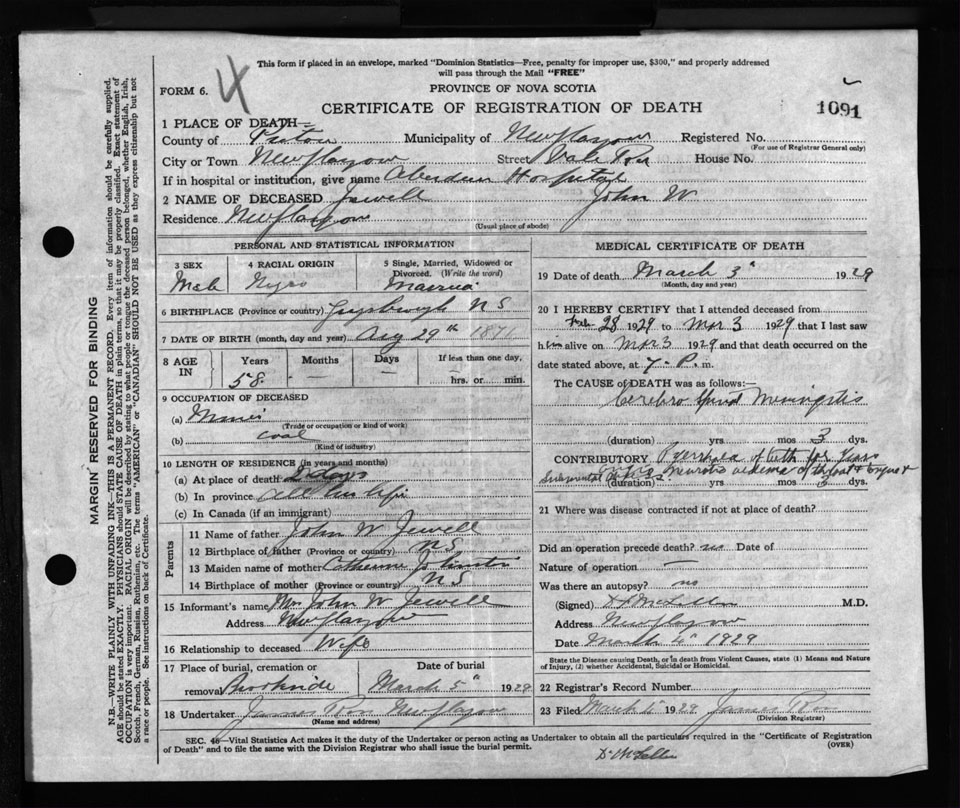 This form if placed in an envelope, marked "Dominion Statistics—Free, penalty for improper use, $300," and properly addressed
will pass through the Mail "FREE"
FORM 6.
4
PROVINCE OF NOVA SCOTIA
CERTIFICATE OF REGISTRATION OF DEATH
1091
1 PLACE OF DEATH—
County of Pictou Municipality of New Glasgow Registered No.
(For use of Registrar General only)
City or Town New Glasgow Street Vale Road House No.
If in hospital or institution, give name Aberdeen Hospital
2 NAME OF DECEASED Jewell John W
Residence New Glasgow
(Usual place of abode)
PERSONAL AND STATISTICAL INFORMATION
3 SEX Male
4 RACIAL ORIGIN Negro
5 Single, Married, Widowed or Divorced. (Write the word) Married
6 BIRTHPLACE (Province or country) Guysborough N S
7 DATE OF BIRTH (month, day and year) Aug 29th 1871
8 AGE IN Years 58 Months — Days — If less than one day, hrs. or min.
9 OCCUPATION OF DECEASED
(a) Miner
(Trade or occupation or kind of work)
(b) coal
(Kind of industry)
10 LENGTH OF RESIDENCE (in years and months)
(a) At place of death 2 days
(b) In province All his life
(c) In Canada (if an immigrant)
Parents
11 Name of father John W Jewell
12 Birthplace of father (Province or country) N S
13 Maiden name of mother Catherine Johnston
14 Birthplace of mother (Province or country) N S
15 Informant's name Mrs John W Jewell
Address New Glasgow
16 Relationship to deceased Wife
17 Place of burial, cremation or removal Brookside
Date of burial March 5th 1929
18 Undertaker James Ross New Glasgow
(Name and address)
MEDICAL CERTIFICATE OF DEATH
19 Date of death March 3" 1929
(Month, day and year)
20 I HEREBY CERTIFY that I attended deceased from
Feb 28 1929 to Mar 3 1929 that I last saw
him alive on Mar 3 1929 and that death occurred on the
date stated above, at 7 - P. m.
The CAUSE of DEATH was as follows:—
Cerebro Spinal Meningitis
(duration) yrs mos 3 dys.
CONTRIBUTORY Pyorrhea of teeth for years
Submental oedema of throat & tongue
(duration) yrs mos 3 dys.
21 Where was disease contracted if not at place of death?
Did an operation precede death? no Date of
Nature of operation —
Was there an autopsy? no
(Signed) M.D.
Address New Glasgow
Date March 4" 1929
State the Disease causing Death, or in death from Violent Causes, state (1) Means and Nature of Injury, (2) whether Accidental, Suicidal or Homicidal.
22 Registrar's Record Number
23 Filed March 4" 1929 James Ross
(Division Registrar)
SEC. 46—Vital Statistics Act makes it the duty of the Undertaker or person acting as Undertaker to obtain all the particulars required in the "Certificate of Registration
of Death" and to file the same with the Division Registrar who shall issue the burial permit.
(OVER)
MARGIN RESERVED FOR BINDING
N.B.—WRITE PLAINLY WITH UNFADING INK—THIS IS A PERMANENT RECORD. Every item of information should be carefully supplied.
AGE should be stated EXACTLY. PHYSICIANS should STATE CAUSE OF DEATH in plain terms, so that it may be properly classified. Exact statement of
OCCUPATION is very important. RACIAL ORIGIN will be described by stating to what people or tongue the deceased person belonged, whether English, Irish,
Scotch, French, German, Russian, Ruthenian, etc. The terms "AMERICAN" or "CANADIAN" SHOULD NOT BE USED as they express citizenship but not
a race or people. See instructions on back of Certificate.